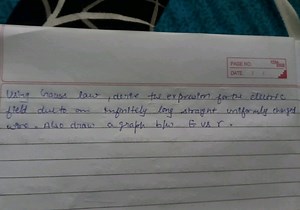 PAGE NO.
DATE: / /
Using Gauss law, derive the expression for the electric
field due to an infinitely long straight uniformly charged
wire. Also draw a graph b/w E vs r.